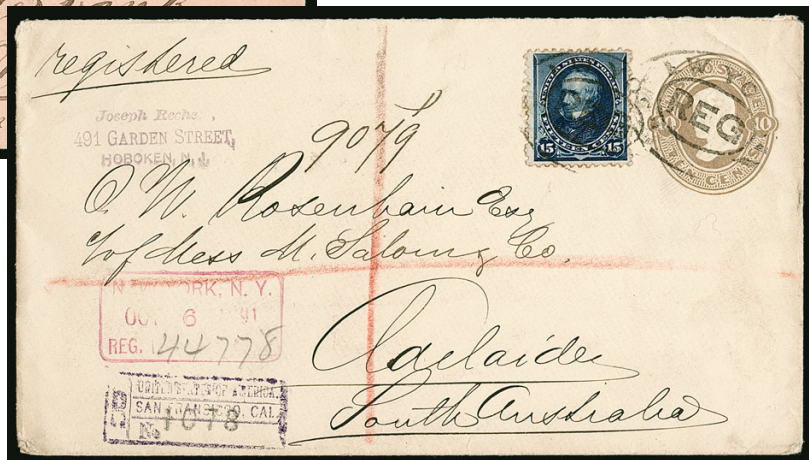 registered
Joseph Reche
491 GARDEN STREET,
HOBOKEN, N. J.
9079
UNITED STATES POSTAGE
15 FIFTEEN CENTS 15
REG
10
O. W. Rosenhain Esq
c/o of Mess M. Salom & Co.
NEW YORK, N. Y.
OCT 6 91
REG. 44778
Adelaide
South Australia
UNITED STATES OF AMERICA.
SAN FRANCISCO, CAL.
R No 1078